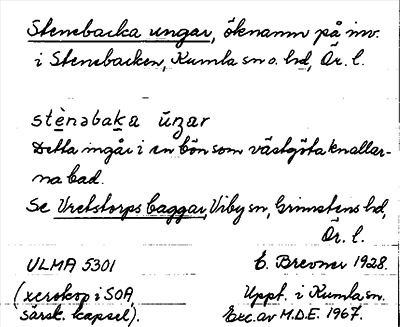 Stenebacka ungar, öknamn på inv.
i Stenebacken, Kumla sn o. hd, Ör. l.
stènəbaka úŋar
Detta ingår i en bön som västgötaknallar-
na bad.
Se Vretstorps baggar, Viby sn, Grimstens hd,
Ör. l.
ULMA 5301 E. Brevner 1928.
(xerokop i SOA, Uppt. i Kumla sn.
särsk. kapsel). Exc. av M.D.E. 1967.